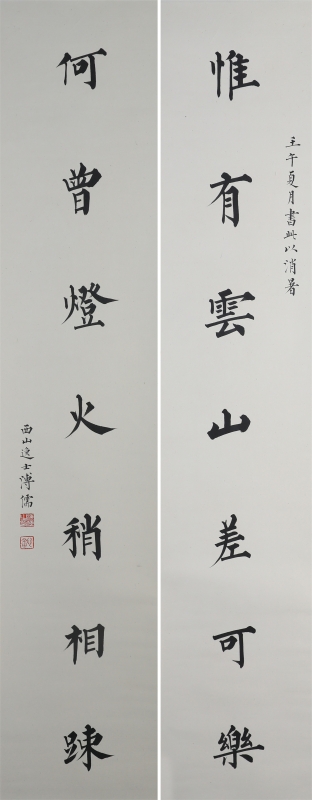 惟有雲山差可樂
壬午夏月書此以消暑
何曾燈火稍相踈
西山逸士溥儒